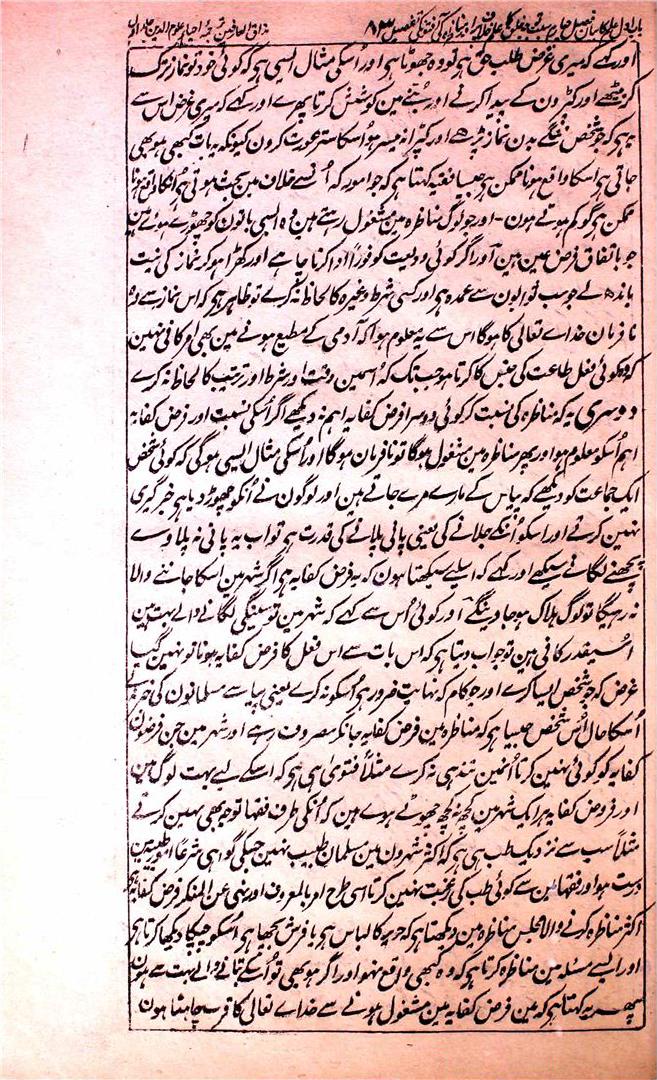 باب اول علم کا بیان فصل چہارم ۸۳ مذاق العارفین ترجمہ احیاء علوم الدین جلد اول
اور کہے کہ میری غرض طلب حق ہی تو وہ جھوٹا ہی اور اسکی مثال ایسی ہی کہ کوئی خود تو نماز ترک
کر بیٹھے اور کپڑون کے پیدا کرنے اور بننے مین کوشش کرتا پھرے اور کہے کہ میری غرض اس سے
یہ ہی کہ جو شخص ننگے بدن نماز پڑھے اور کپڑا نہ میسر ہو اسکا ستر عورت کرون کیونکہ یہ بات کبھی ہو بھی
جاتی ہی اسکا واقع ہونا ممکن ہی جیسا فقیہ کہتا ہی کہ جو امور کہ اُنسے خلاف مین بحث ہوتی ہی اُنکا واقع ہونا
ممکن ہی گو کم ہوتے ہون - اور جو لوگ مناظرہ مین مشغول رہتے ہین وہ ایسی باتون کو چھوڑے ہوئے ہین
جو باتفاق فرض عین ہین اور اگر کوئی ودیعت کو فوراً ادا کرنا چاہے اور کھڑا ہو کر نماز کی نیت
باندھ لے جو سب ثوابون سے عمدہ ہی اور کسی شرط وغیرہ کا لحاظ نہ کرے تو ظاہر ہی کہ اس نماز سے وہ
نافرمان خداے تعالی کا ہوگا اس سے یہ معلوم ہوا کہ آدمی کے مطیع ہونے مین یہی امر کافی نہین
کہ وہ کوئی فعل طاعت کی جنس کا کرتا ہو جب تک کہ اُسمین وقت اور شرط اور ترتیب کا لحاظ نہ کرے
دوسری یہ کہ مناظرہ کی نسبت کر کوئی دوسرا فرض کفایہ اہم نہ دیکھے اگر اُسکی نسبت اور فرض کفایہ
اہم اُسکو معلوم ہو اور پھر مناظرہ مین مشغول ہوگا تو نافرمان ہوگا اور اسکی مثال ایسی ہوگی کہ کوئی شخص
ایک جماعت کو دیکھے کہ پیاس کے مارے مرے جاتے ہین اور لوگون نے اُنکو چھوڑ دیا ہی خبر گیری
نہین کرتے اور اسکو اُنکے جلانے کی یعنی پانی پلانے کی قدرت ہی تو اب یہ پانی نہ پلاوے
پچھنے لگانے سیکھے اور کہے کہ اسلیے سیکھتا ہون کہ یہ فرض کفایہ ہی اگر شہر مین اسکا جاننے والا
نہ رہیگا تو لوگ ہلاک ہو جاوینگے اور کوئی اُس سے کہے کہ شہر مین تو سینگی لگانے والے بہت ہین
اسیقدر کافی ہین تو جواب دیتا ہی کہ اس بات سے اس فعل کا فرض کفایہ ہونا تو نہین گیا
غرض کہ جو شخص ایسا کرے اور جو کام کہ نہایت ضرور ہی اُسکو نہ کرے یعنی پیاسے مسلمانون کی خبر نہ لے
اُسکا حال اُس شخص جیسا ہی کہ مناظرہ مین فرض کفایہ جانکر مصروف رہے اور شہر مین جن فرضون
کفایہ کو کوئی نہین کرتا اُنمین تندہی نہ کرے مثلاً فتوی ہی ہی کہ اسکے لیے بہت لوگ ہین
اور فروض کفایہ ہر ایک شہر مین کچھ نہ کچھ چھوٹے ہوے ہین کہ اُنکی طرف فقہا توجہ بھی نہین کرتے
مثلاً سب سے نزدیک طب ہی ہی کہ اکثر شہرون مین مسلمان طبیب نہین جسکی گواہی شرعاً امور طبیہ مین
درست ہو اور فقہا مین سے کوئی طب کی رغبت نہین کرتا اسی طرح امر بالمعروف اور نہی عن المنکر فرض کفایہ ہی
اکثر مناظرہ کرنے والا مجلس مناظرہ مین دیکھتا ہی کہ حریر کا لباس ہی یا فرش بچھا ہی اُسکو چپکا دیکھا کرتا ہی
اور ایسے مسئلہ مین مناظرہ کرتا ہی کہ وہ کبھی واقع نہو اور اگر ہو بھی تو اُسکے بتانے والے بہت سے ہون
پھر یہ کہتا ہی کہ مین فرض کفایہ مین مشغول ہونے سے خداے تعالی کا قرب چاہتا ہون